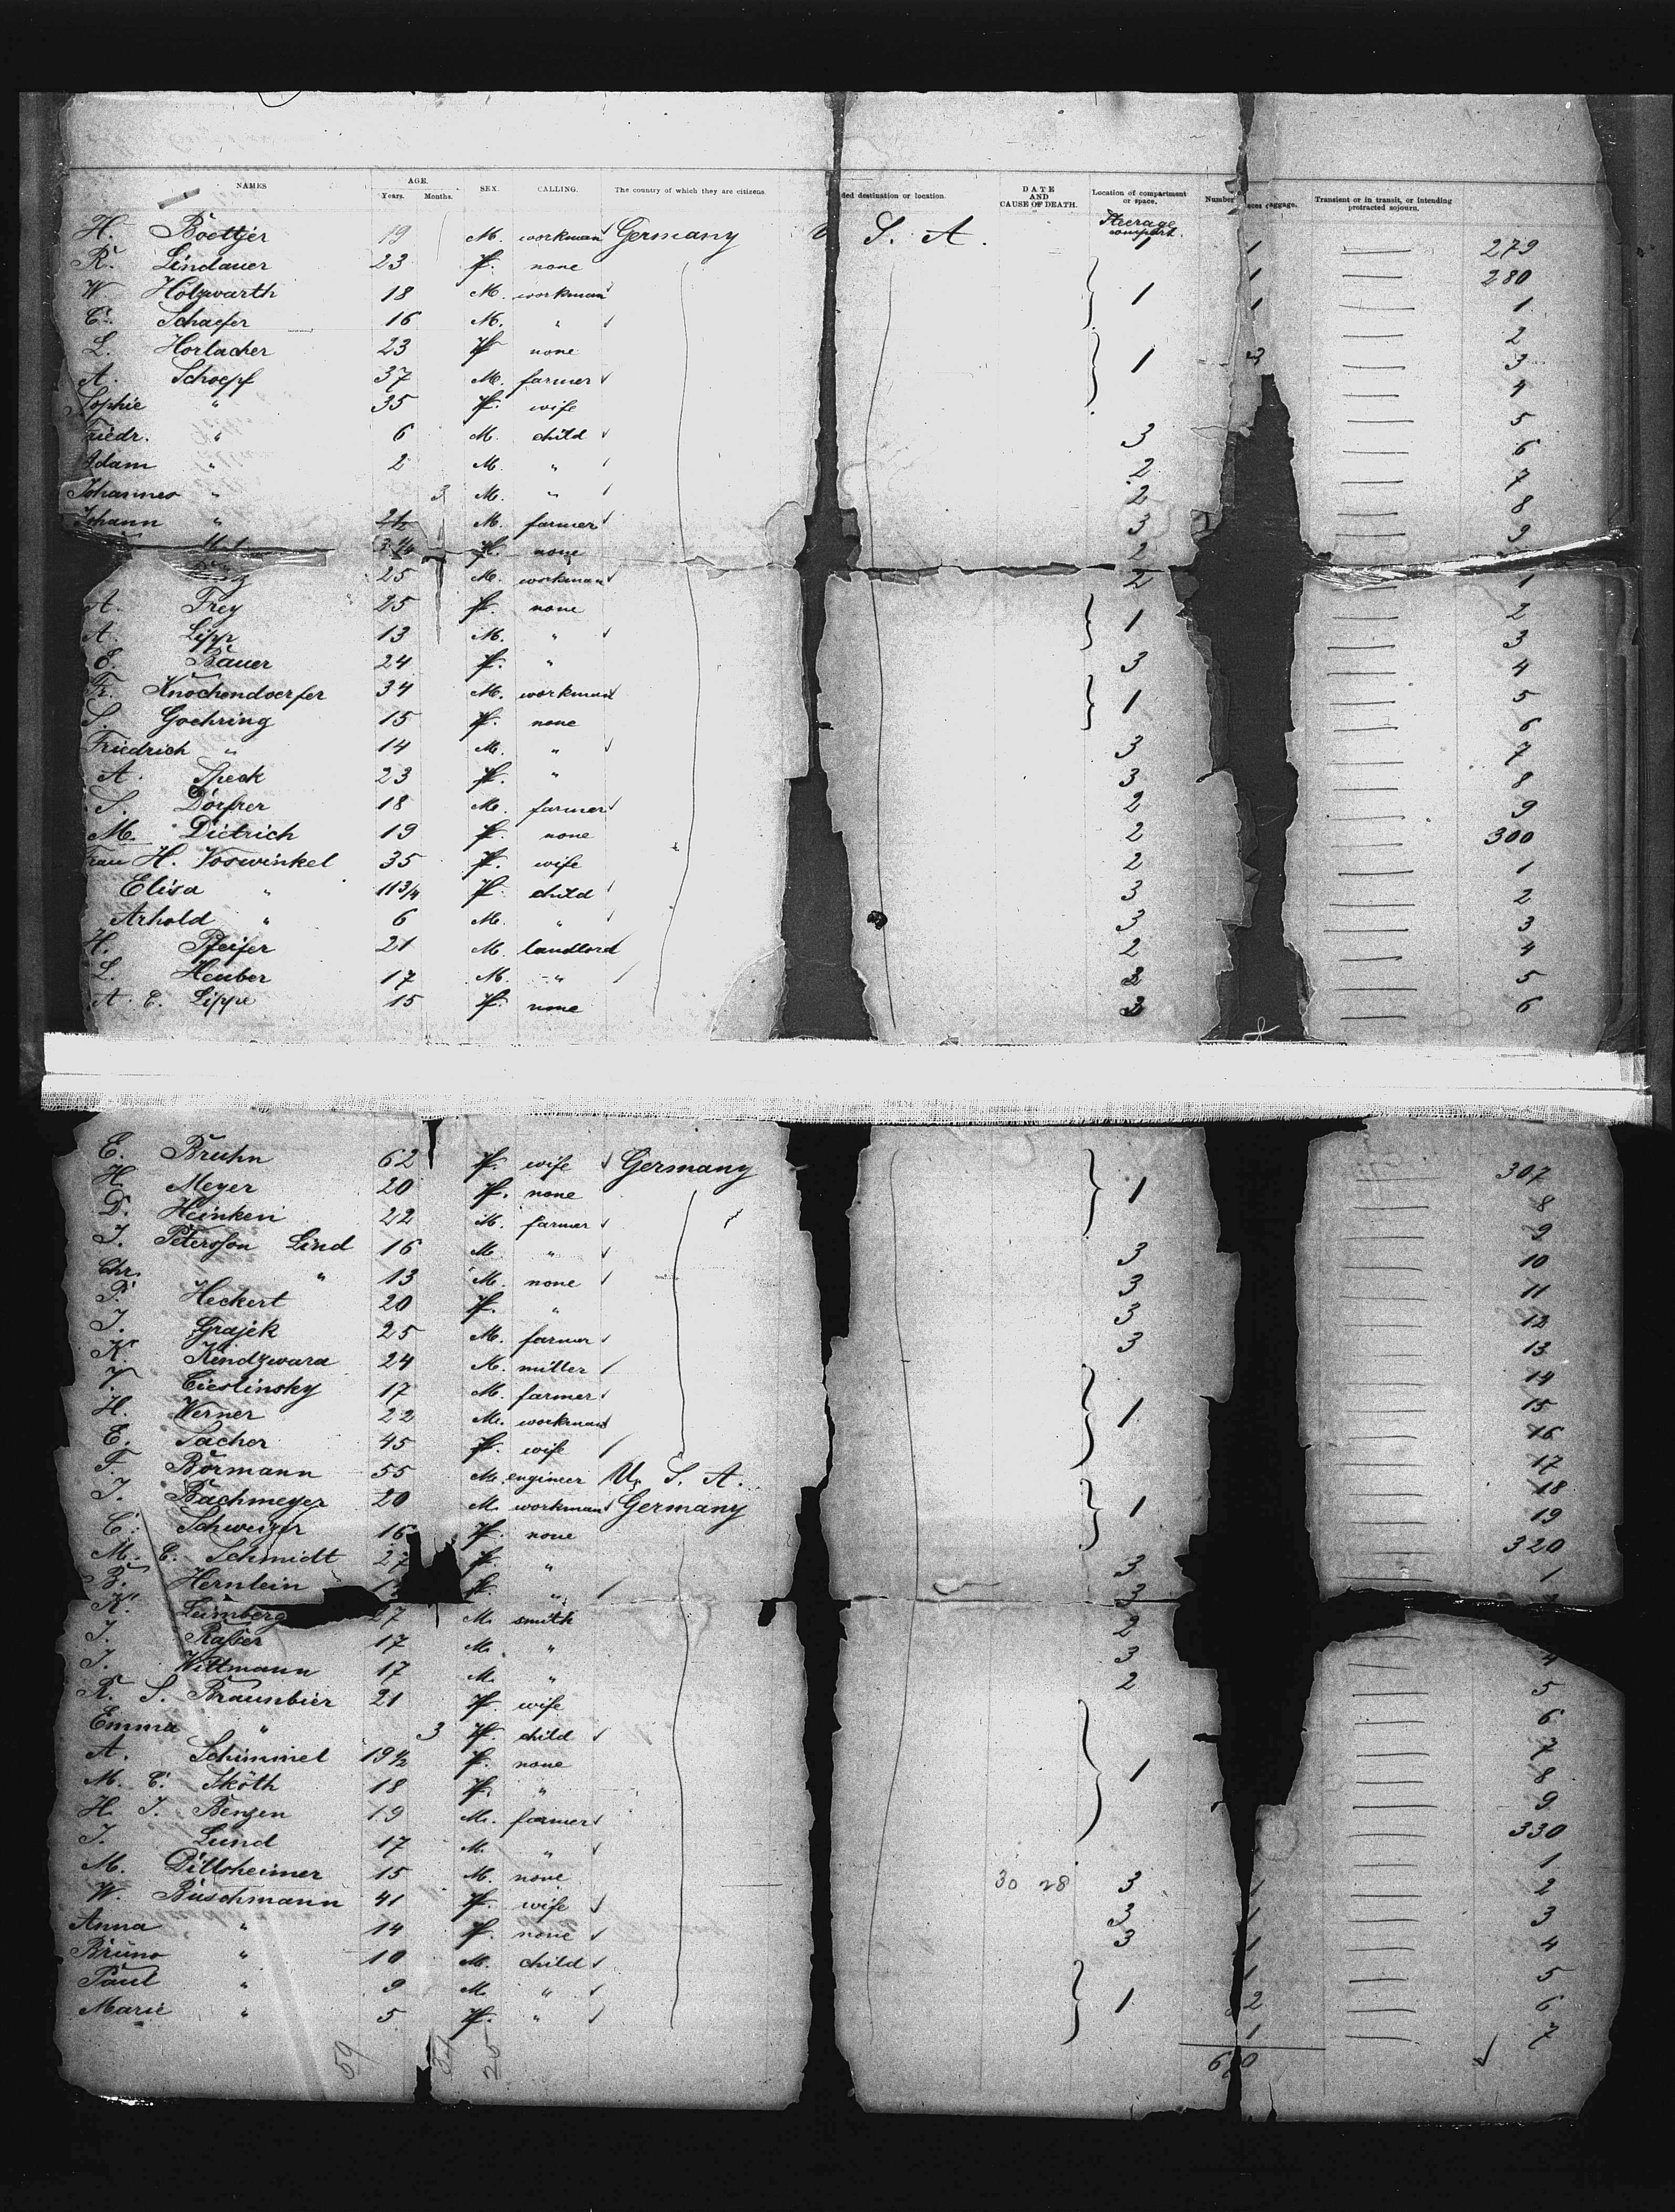 NAMES AGE. Years. Months. SEX. CALLING. The country of which they are citizens. ded destination or location. DATE AND CAUSE OF DEATH. Location of compartment or space. Number eces aggage. Transient or in transit, or intending protracted sojourn.
H. Boettjer 19 M. workman Germany U S. A. Steerage compart. 1 1 279
R. Lindauer 23 F. none 1 280
W Holzwarth 18 M. workman 1 1 1
C. Schaefer 16 M. " 2
L. Horlacher 23 F none 1 3 3
A. Schoepf 37 M. farmer 4
Sophie " 35 F. wife 5
Friedr. " 6 M. child 3 6
Adam " 2 M. " 2 7
Johannes " 3 M. " 2 8
Johann " 21/2 M. farmer 3 9
3 1/4 F. none 2
25 M. workman 2 1
A. Frey 25 F. none 2
A. Lipp 13 M. " 1 3
E. Bauer 24 F. " 3 4
Fr. Knochendoerfer 34 M. workman 1 5
S. Goehring 15 F. none 6
Friedrich " 14 M. " 3 7
A. Speck 23 F. " 3 8
S. Dörfrer 18 M. farmer 2 9
M. Dietrich 19 F. none 2 300
Frau H. Voswinkel 35 F. wife 2 1
Elisa " 11 3/4 F. child 3 2
Arnold " 6 M. " 3 3
H. Pfeifer 21 M. landlord 2 4
L. Heuber 17 M. " 5
A. E. Lippe 15 F. none 6
E. Bruhn 62 F. wife Germany 307
H. Meyer 20 F. none 1 8
D. Heinken 22 M. farmer 9
J. Petersson Lind 16 M " 3 10
Chr. " 13 M. none 3 11
P. Heckert 20 F. " 3 12
J. Grajek 25 M. farmer 3 13
K. Kendzwara 24 M. miller 14
Cieslinsky 17 M. farmer 15
H. Werner 22 M. workman 1 16
E. Sacher 45 F. wife 17
F. Bormann 55 M. engineer U. S. A. 18
J. Bachmeyer 20 M. workman Germany 1 19
C. Schweizer 16 F. none 320
M. C. Schmidt 27 F. " 3 1
B. Hernlein F. " 3
K. Leimberg 27 M. smith 2
J. Rasser 17 M. " 3 4
J. Wittmann 17 M. " 2 5
R. S. Braunbier 21 F. wife 6
Emma " 3 F. child 7
A. Schimmel 19 1/2 F. none 8
M. C. Sköth 18 F. " 1 9
H. J. Benzen 19 M. farmer 330
J. Lund 17 M. " 1
M. Dillsheimer 15 M. none 30 28 3 1 2
W. Buschmann 41 F. wife 3 1 3
Anna " 14 F. none 3 1 4
Bruno " 10 M. child 1 5
Paul " 9 M. " 1 2 6
Marie " 5 F. " 1 7
59 34 25